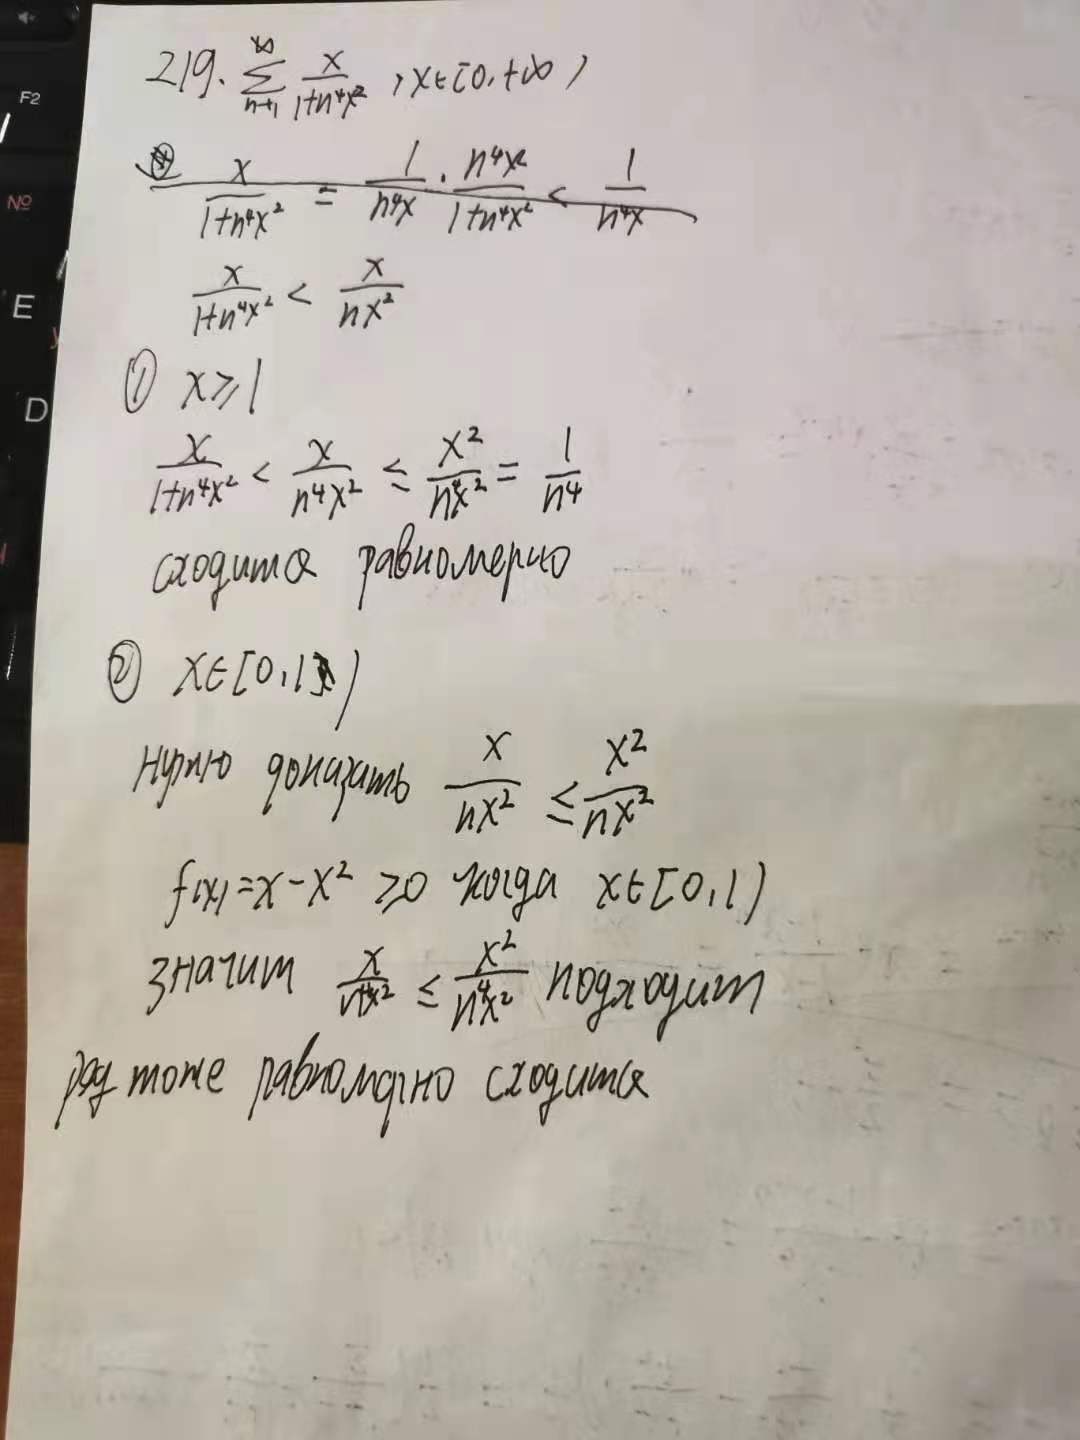 F2
№
E
D
219. ∑_{n=1}^{∞} x/(1+n⁴x²) , x∈[0,+∞)
x/(1+n⁴x²) = 1/(n⁴x) · n⁴x²/(1+n⁴x²) < 1/(n⁴x)
x/(1+n⁴x²) < x/(nx²)
① x ≥ 1
x/(1+n⁴x²) < x/(n⁴x²) ≤ x²/(n⁴x²) = 1/n⁴
сходится равномерно
② x∈[0,1)
нужно доказать x/(nx²) ≤ x²/(nx²)
f(x)=x-x² ≥0 когда x∈[0,1)
значит x/(n⁴x²) ≤ x²/(n⁴x²) подходит
ряд тоже равномерно сходится